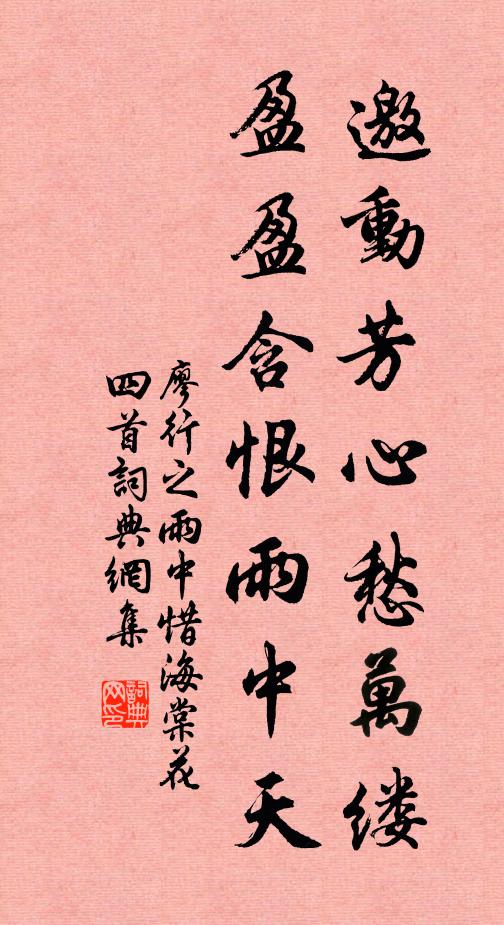 邀動芳心愁萬缕
盈盈含恨雨中天
廖行之雨中惜海棠花
四首詞典網集
詞典网印